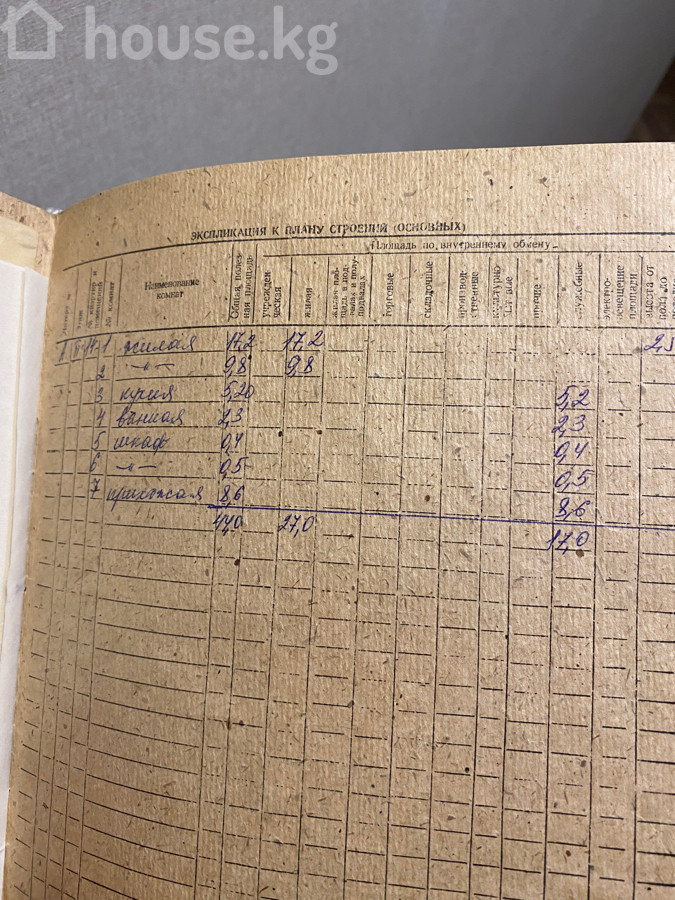 house.kg
ЭКСПЛИКАЦИЯ К ПЛАНУ СТРОЕНИЙ (ОСНОВНЫХ)
Площадь по внутреннему обмеру
Этаж
№ комнат
Наименование комнат
Общая полезная площадь
учрежденческая
жилая
жилая площадь в подвалах и полуподвалах
торговые
складочные
производственные
культурно-
прочие
служебные
электроосвещение площади
высота от пола до
II 14 1 жилая 17,2 17,2 2,5
2 -"- 9,8 9,8
3 кухня 5,20 5,2
4 ванная 2,3 2,3
5 шкаф 0,4 0,4
6 -"- 0,5 0,5
7 прихожая 8,6 8,6
44,0 27,0 17,0